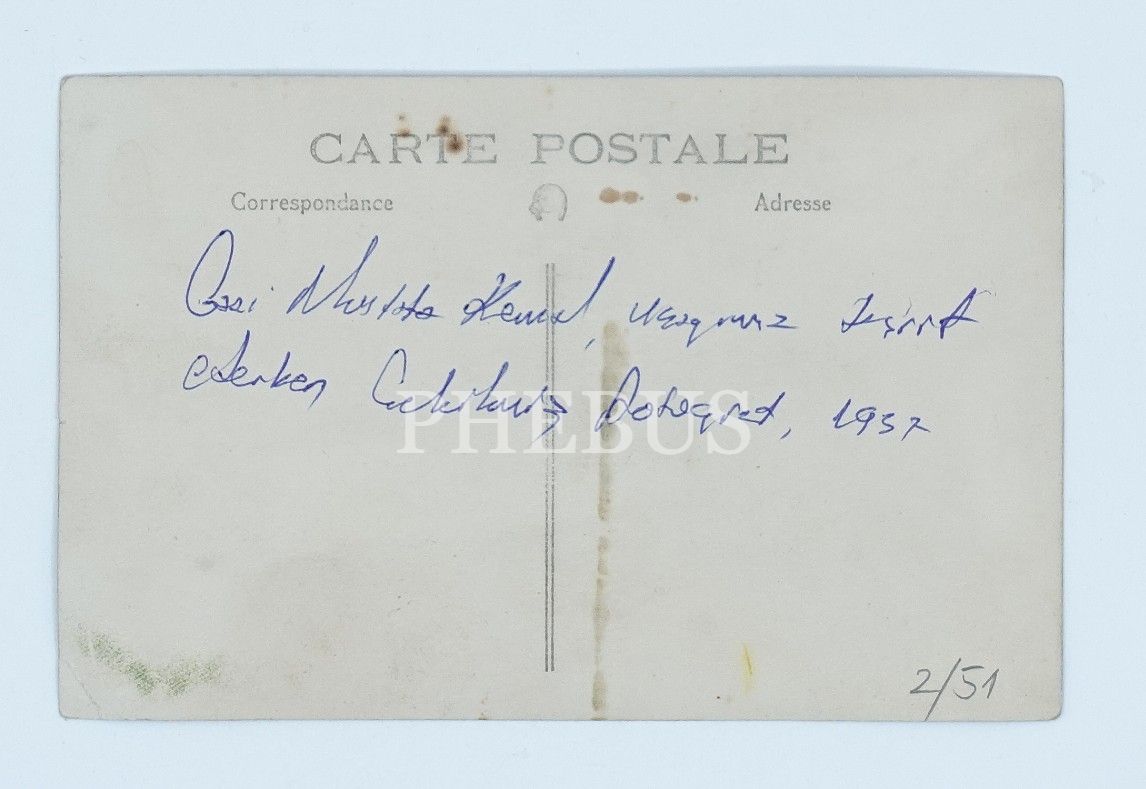 CARTE POSTALE
Correspondance Adresse
Gazi Mustafa Kemal,
ederken Çekilmiş Fotoğraf, 1937
PHEBUS
2/51